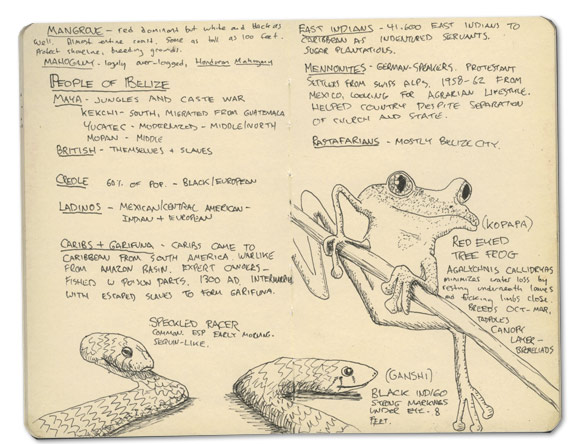 MANGROVE - red dominant but white and black as
well. Almost entire coast. Some as tall as 100 feet.
Protect shoreline, breeding grounds.
MAHOGNY - largely over-logged, Honduran Mahogany
PEOPLE OF BELIZE
MAYA - JUNGLES AND CASTE WAR
KEKCHI - SOUTH, MIGRATED FROM GUATEMALA
YUCATEC - MODERNIZED - MIDDLE/NORTH
MOPAN - MIDDLE
BRITISH - THEMSELVES + SLAVES
CREOLE 60% OF POP. - BLACK/EUROPEAN
LADINOS - MEXICAN/CENTRAL AMERICAN -
INDIAN + EUROPEAN
CARIBS + GARIFUNA - CARIBS CAME TO
CARIBBEAN FROM SOUTH AMERICA. WARLIKE
FROM AMAZON BASIN. EXPERT CANOERS -
FISHED W POISON DARTS. 1300 AD INTERMARRY
WITH ESCAPED SLAVES TO FORM GARIFUNA.
SPECKLED RACER
COMMON. ESP EARLY MORNING.
SEQUIN-LIKE.
EAST INDIANS - 41,600 EAST INDIANS TO
CARIBBEAN AS INDENTURED SERVANTS.
SUGAR PLANTATIONS.
MENNONITES - GERMAN-SPEAKERS. PROTESTANT
SETTLERS FROM SWISS ALPS. 1958-62 FROM
MEXICO, LOOKING FOR AGRARIAN LIFESTYLE.
HELPED COUNTRY DESPITE SEPARATION
OF CHURCH AND STATE.
RASTAFARIANS - MOSTLY BELIZE CITY.
(KOPAPA)
RED EYED
TREE FROG
AGALYCHNIS CALLIDRYAS
minimizes water loss by
resting underneath leaves
and tucking limbs close.
BREEDS OCT-MAR,
TADPOLES
CANOPY
LAYER -
BROMELIADS
(GANSHI)
BLACK INDIGO
STRONG MARKINGS
UNDER EYE - 8
FEET.